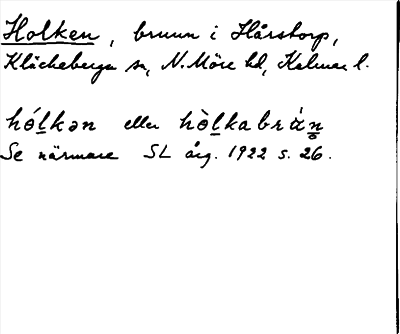 Holken, brunn i Hårstorp,
Kläckeberga sn, N. Möre hd, Kalmar l.
hólkən eller hòlkabrùn
Se närmare SL årg. 1922 s. 26.